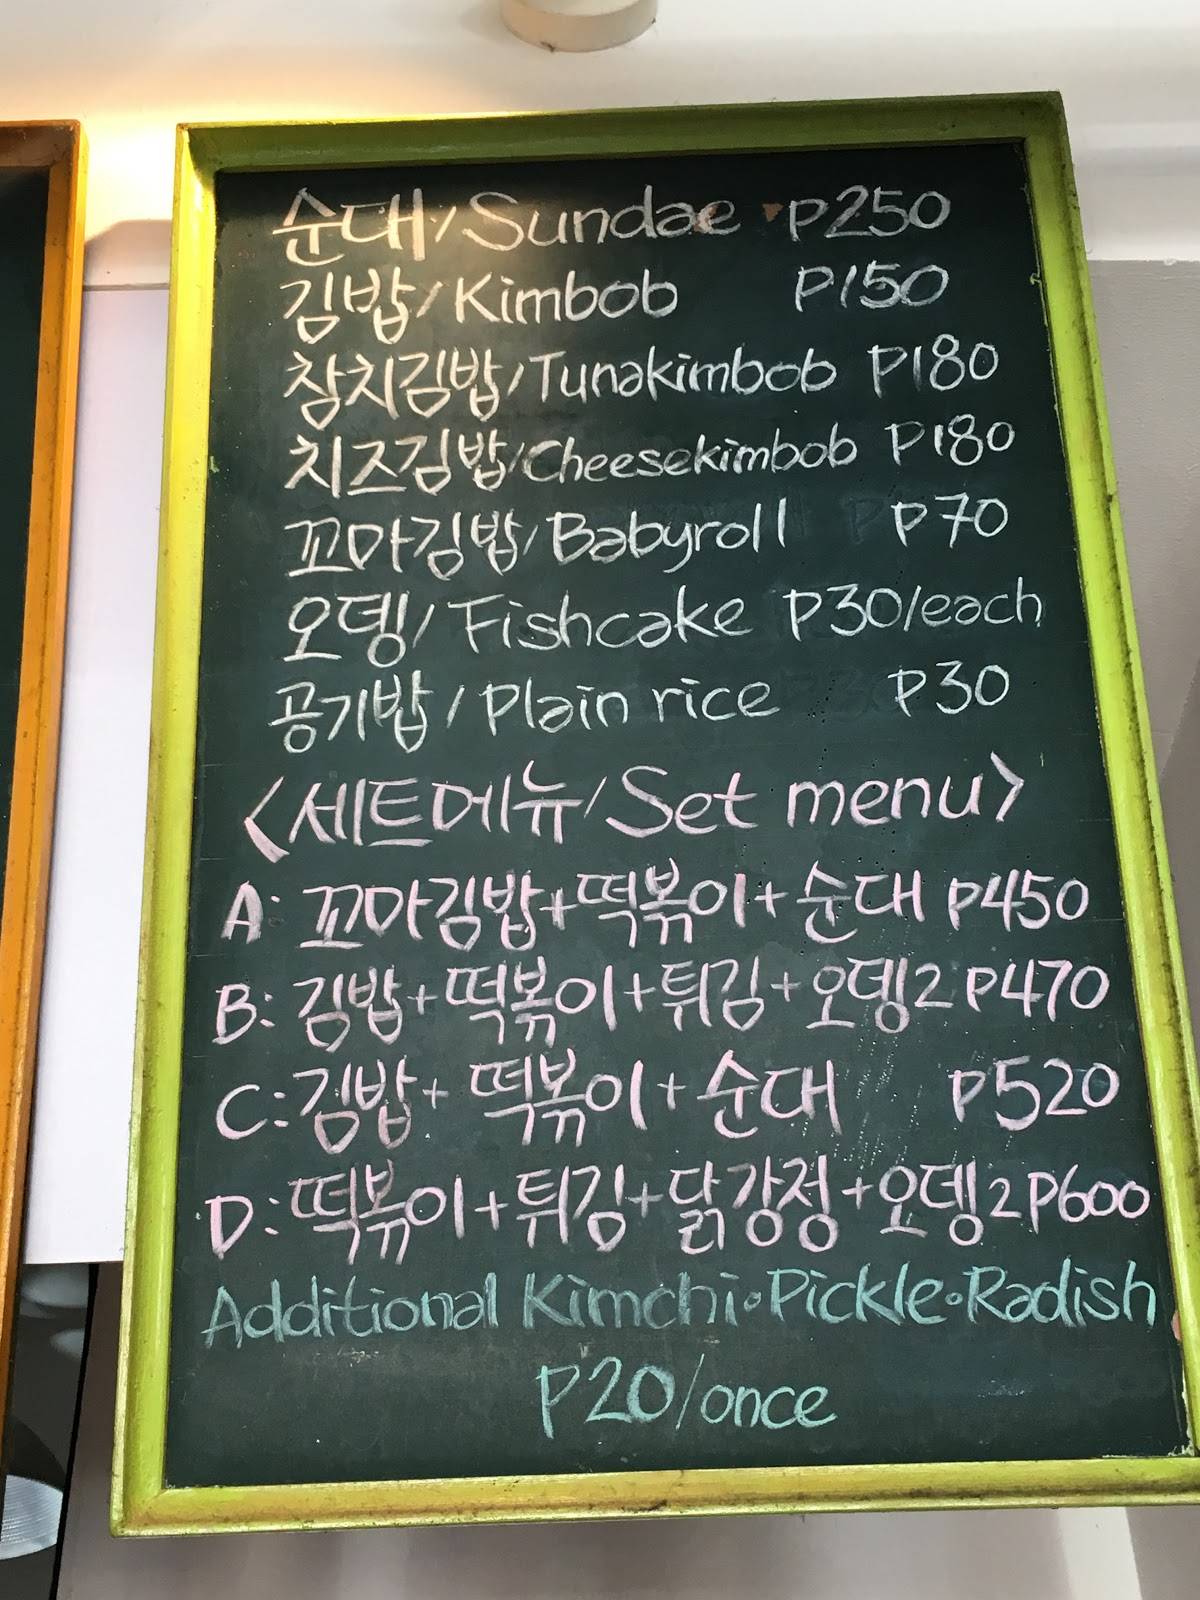 순대/Sundae P250
김밥/Kimbob P150
참치김밥/Tunakimbob P180
치즈김밥/Cheesekimbob P180
꼬마김밥/Babyroll P70
오뎅/Fishcake P30/each
공기밥/Plain rice P30
<세트메뉴/Set menu>
A: 꼬마김밥+떡볶이+순대 P450
B: 김밥+떡볶이+튀김+오뎅2 P470
C: 김밥+떡볶이+순대 P520
D: 떡볶이+튀김+닭강정+오뎅2 P600
Additional Kimchi∘Pickle∘Radish
P20/once